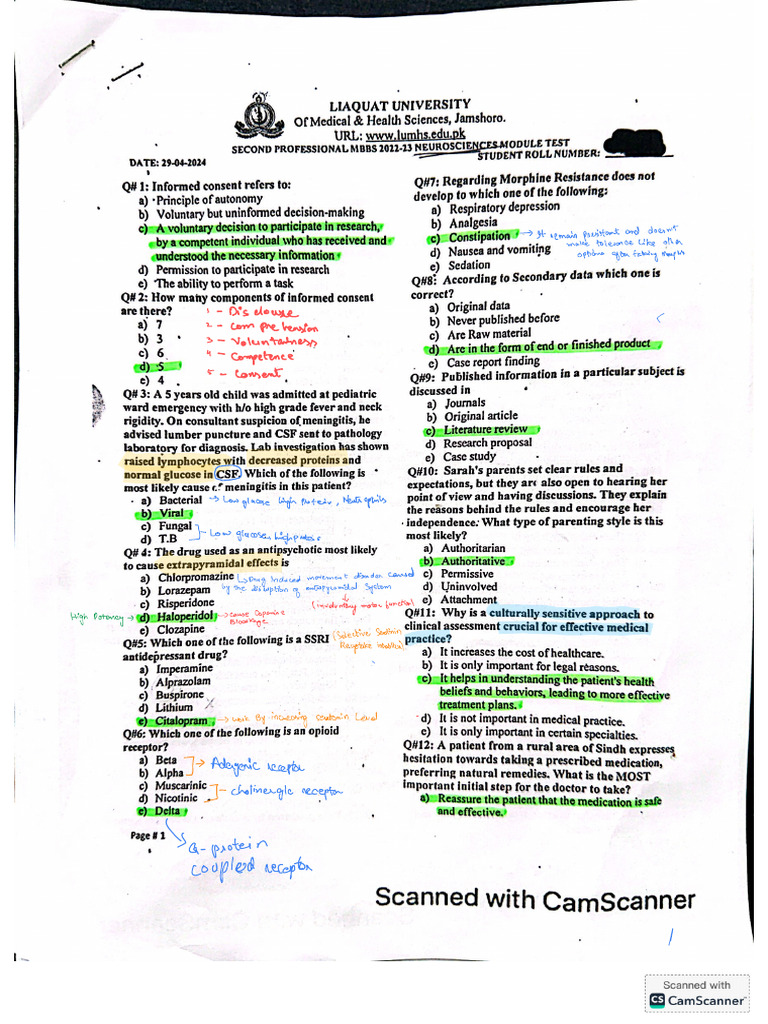 LIAQUAT UNIVERSITY
Of Medical & Health Sciences, Jamshoro.
URL: www.lumhs.edu.pk
SECOND PROFESSIONAL MBBS 2022-23 NEUROSCIENCES MODULE TEST
DATE: 29-04-2024
STUDENT ROLL NUMBER:
Q# 1: Informed consent refers to:
a) Principle of autonomy
b) Voluntary but uninformed decision-making
c) A voluntary decision to participate in research,
by a competent individual who has received and
understood the necessary information
d) Permission to participate in research
e) The ability to perform a task
Q# 2: How many components of informed consent
are there?
a) 7
b) 3
c) 6
d) 5
e) 4
1 - Disclouse
2 - Comprehension
3 - Voluntariness
4 - Competence
5 - Consent
Q# 3: A 5 years old child was admitted at pediatric
ward emergency with h/o high grade fever and neck
rigidity. On consultant suspicion of meningitis, he
advised lumber puncture and CSF sent to pathology
laboratory for diagnosis. Lab investigation has shown
raised lymphocytes with decreased proteins and
normal glucose in CSF. Which of the following is
most likely cause of meningitis in this patient?
a) Bacterial → Low glucose high Protein, Neutrophils
b) Viral
c) Fungal
d) T.B
Low glucose high protein
Q# 4: The drug used as an antipsychotic most likely
to cause extrapyramidal effects is
a) Chlorpromazine
Drug induced movement disorder caused
b) Lorazepam by the disruption of extrapyramidal system
c) Risperidone (involuntary motor function)
High Potency → d) Haloperidol → cause Dopamine
Blockage
e) Clozapine
Q#5: Which one of the following is a SSRI (Selective Serotonin
antidepressant drug? Reuptake inhibitor)
a) Imperamine
b) Alprazolam
c) Buspirone
d) Lithium
e) Citalopram → work By increasing serotonin Level
Q#6: Which one of the following is an opioid
receptor?
a) Beta
b) Alpha
Adergenic receptor
c) Muscarinic
d) Nicotinic
cholinergic receptor
e) Delta
G-protein
coupled receptor
Page # 1
Q#7: Regarding Morphine Resistance does not
develop to which one of the following:
a) Respiratory depression
b) Analgesia
c) Constipation → It remain persistant and doesn't
make tolerance like other
options after taking
d) Nausea and vomiting
e) Sedation
Q#8: According to Secondary data which one is
correct?
a) Original data
b) Never published before
c) Are Raw material
d) Are in the form of end or finished product
e) Case report finding
Q#9: Published information in a particular subject is
discussed in
a) Journals
b) Original article
c) Literature review
d) Research proposal
e) Case study
Q#10: Sarah's parents set clear rules and
expectations, but they are also open to hearing her
point of view and having discussions. They explain
the reasons behind the rules and encourage her
independence. What type of parenting style is this
most likely?
a) Authoritarian
b) Authoritative
c) Permissive
d) Uninvolved
e) Attachment
Q#11: Why is a culturally sensitive approach to
clinical assessment crucial for effective medical
practice?
a) It increases the cost of healthcare.
b) It is only important for legal reasons.
c) It helps in understanding the patient's health
beliefs and behaviors, leading to more effective
treatment plans.
d) It is not important in medical practice.
e) It is only important in certain specialties.
Q#12: A patient from a rural area of Sindh expresses
hesitation towards taking a prescribed medication,
preferring natural remedies. What is the MOST
important initial step for the doctor to take?
a) Reassure the patient that the medication is safe
and effective.
Scanned with CamScanner
1
Scanned with
CS CamScanner